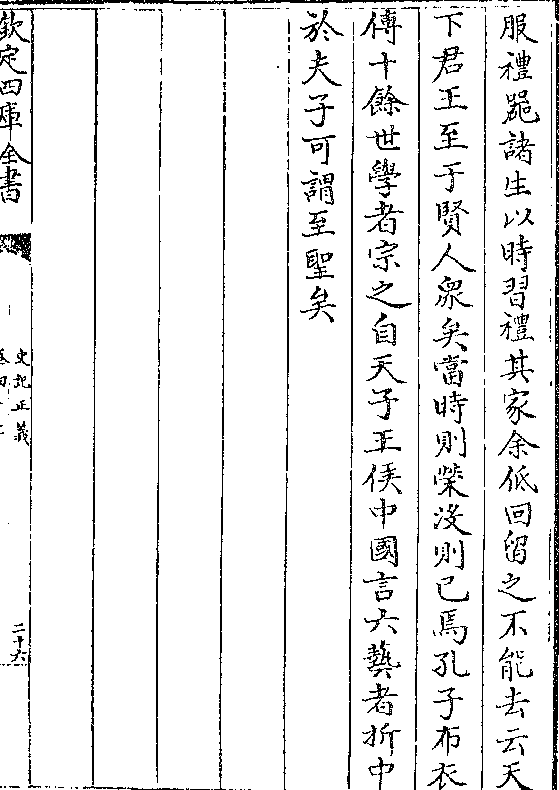 服禮器諸生以時習禮其家余低回留之不能去云天
下君王至于賢人衆矣當時則榮没則已焉孔子布衣
傳十餘世學者宗之自天子王侯中國言六藝者折中
於夫子可謂至聖矣
欽定四庫全書
史記正義
二十六